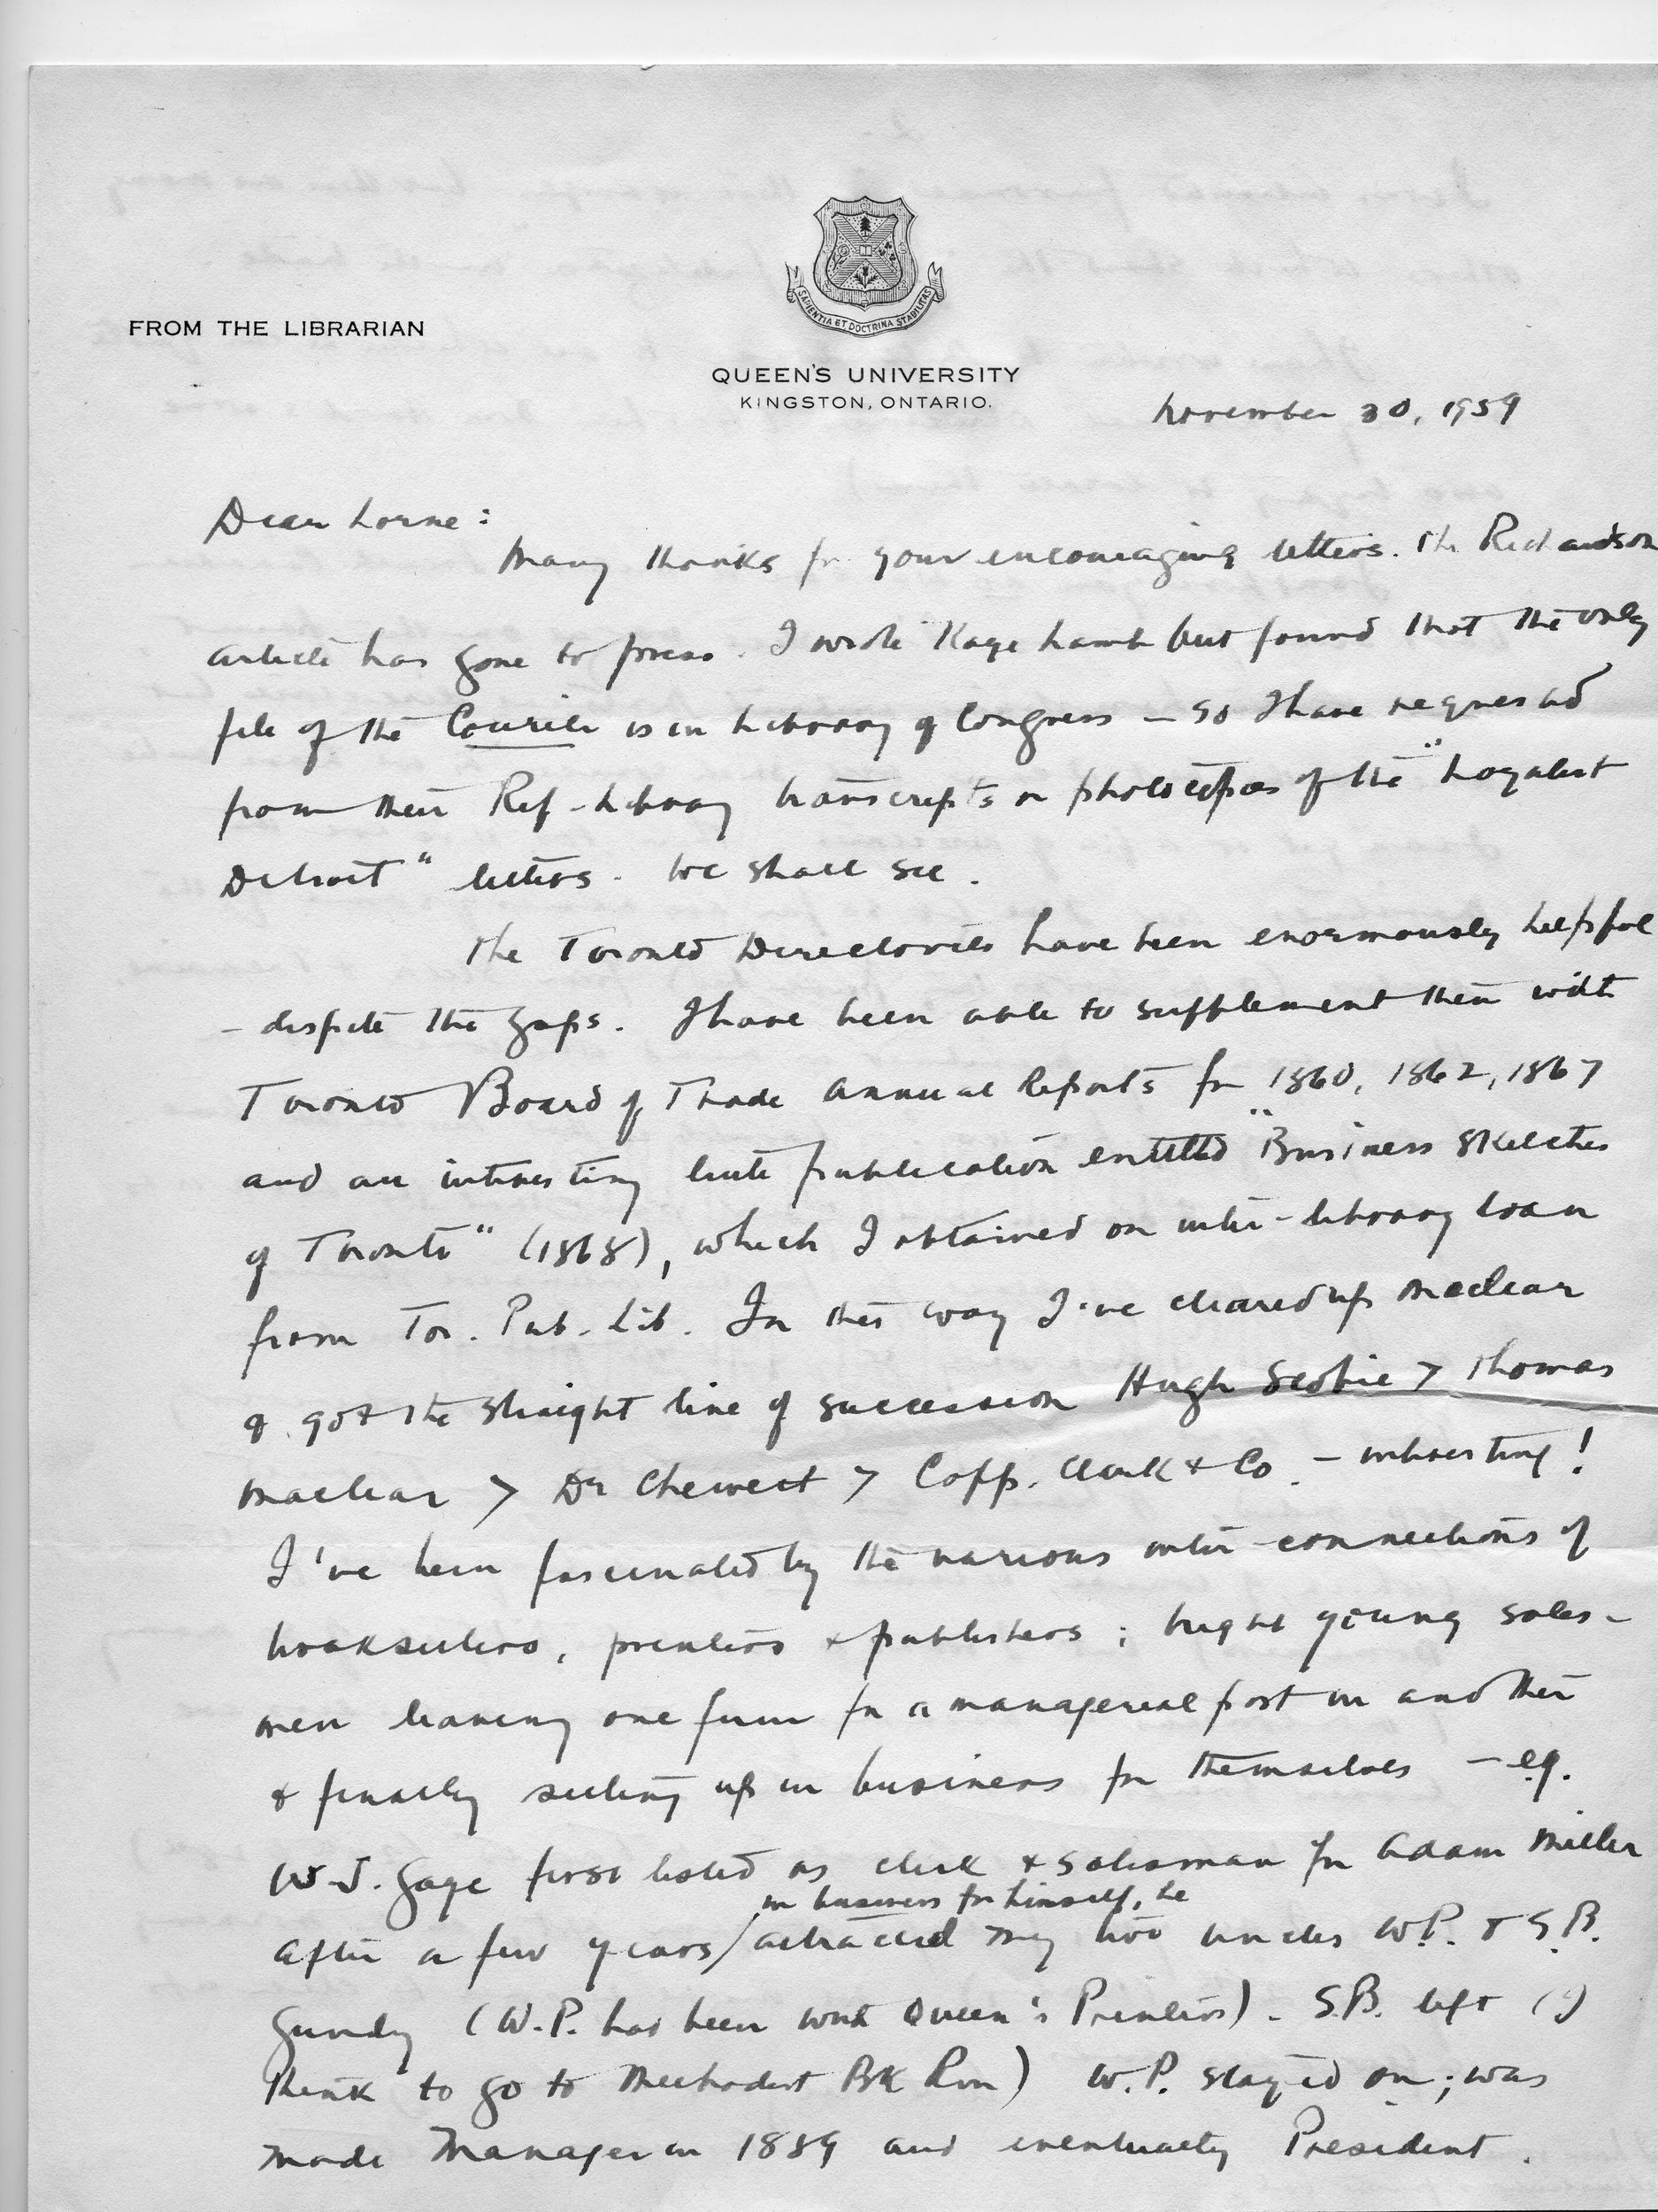 SAPIENTIA ET DOCTRINA STABILITAS
FROM THE LIBRARIAN
QUEEN'S UNIVERSITY
KINGSTON, ONTARIO.
November 30, 1959
Dear Lorne:
Many thanks for your encouraging letters. The Richardson
article has gone to press. I wrote Kaye Lamb but found that the only
file of the Courier is in Library of Congress – so I have requested
from their Ref. Library transcripts or photocopies of the "Loyalist
Detroit" letters. We shall see.
The Toronto Directories have been enormously helpful
– despite the gaps. I have been able to supplement them with
Toronto Board of Trade Annual Reports for 1860, 1862, 1867
and an interesting little publication entitled "Business Sketches
of Toronto" (1868), which I obtained on inter-library loan
from Tor. Pub. Lib. In this way I've cleared up Maclear
& got the straight line of succession Hugh Scobie > Thomas
Maclear > Dr Chewett > Copp, Clark & Co. – interesting!
I've been fascinated by the various inter-connections of
booksellers, printers & publishers; bright young sales-
men leaving one firm for a managerial post in another
& finally setting up in business for themselves – eg.
W.J. Gage first listed as clerk & salesman for Adam Miller
in business for himself, he
After a few years / attracted my two uncles W.P. & S.B.
Gundy (W.P. had been with Queen's Printers). S.B. left (I
think to go to Methodist Bk Rm) W.P. stayed on; was
made Manager in 1889 and eventually President.